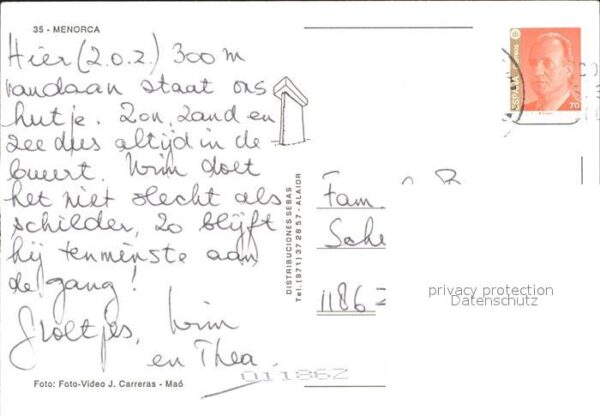 35 - MENORCA
Hier (2.0.2.) 300 m
vandaan staat ons
hutje. Zon, zand en
zee dus altijd in de
buurt. Wim doet
het niet slecht als
schilder, zo blijft
hij tenminste aan
de gang!
Groetjes, Wim
en Thea.
Foto: Foto-Video J. Carreras - Maó
DISTRIBUCIONES SEBAS
Tel. (971) 37 28 57 - ALAIOR
ESPAÑA
70
Fam.
Sche
1186
privacy protection
Datenschutz
011862